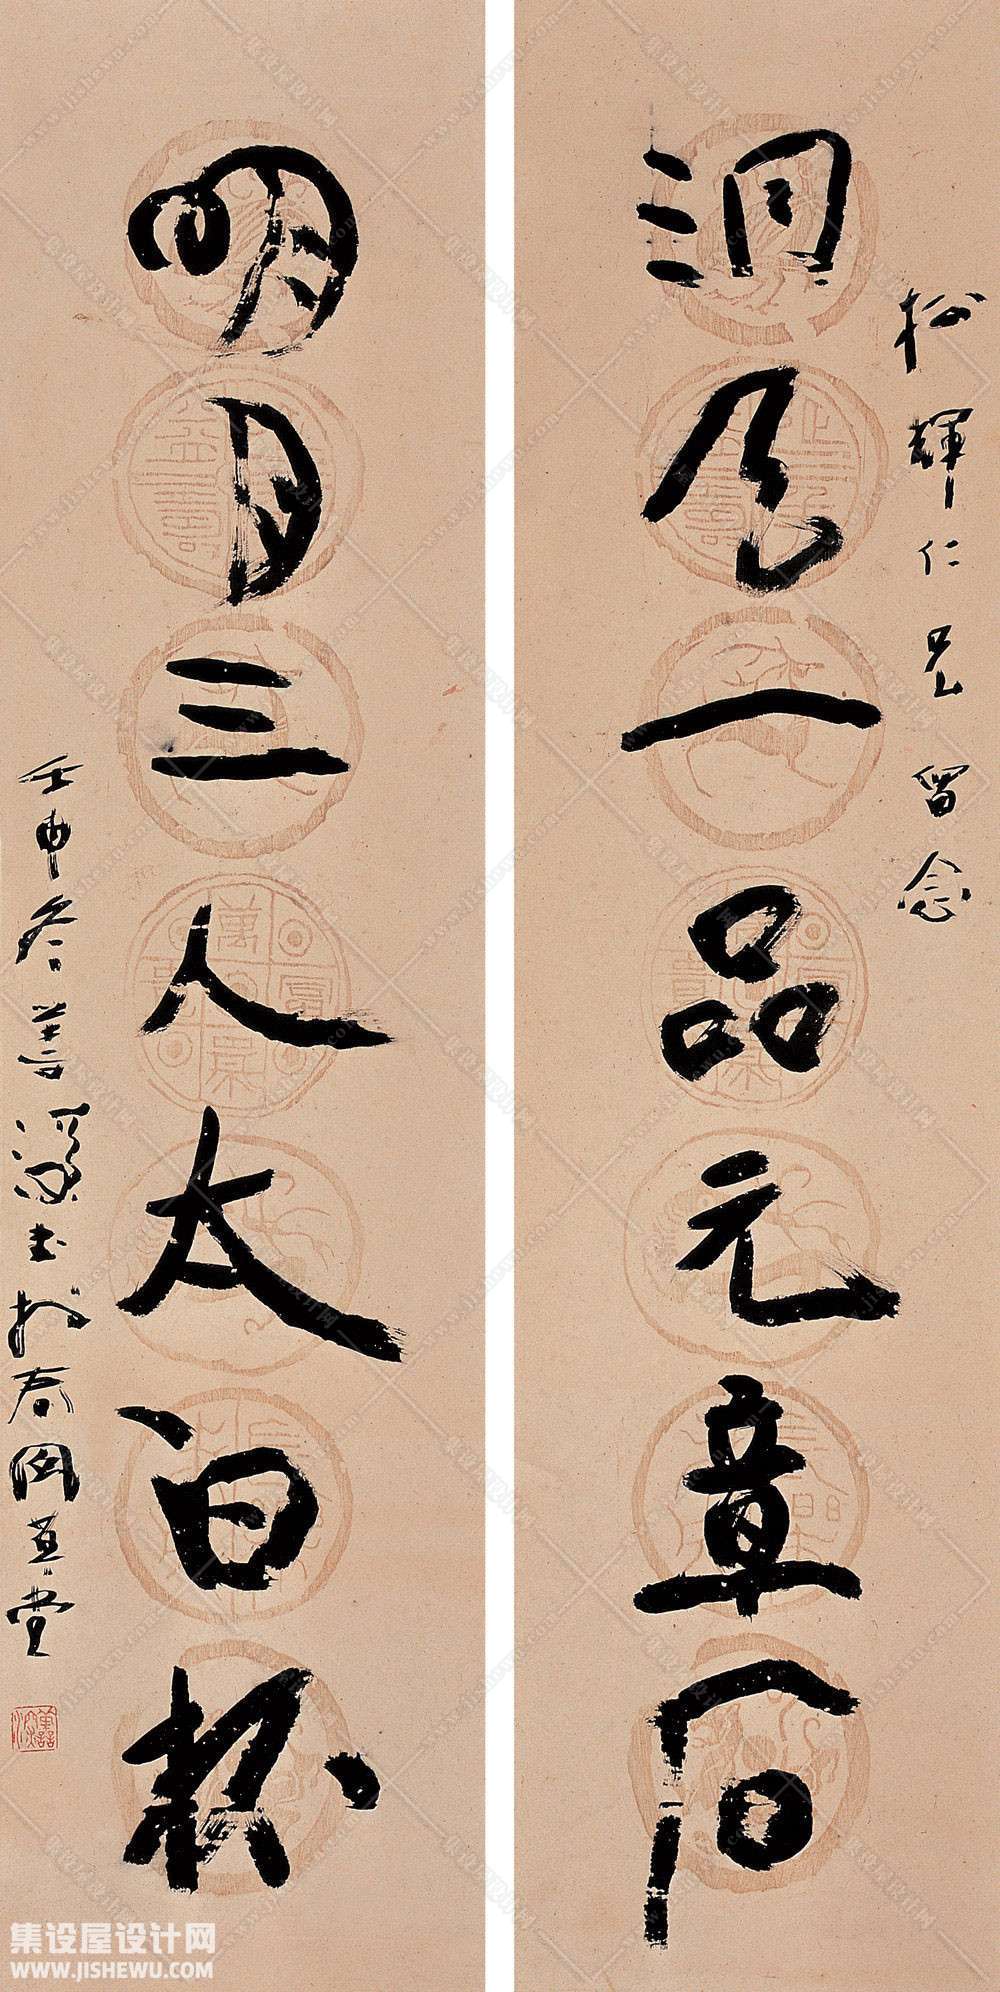 松輝仁兄留念
洞天一品元章石
明月三人太白杯
壬申冬善深书於草堂
集设屋设计网
WWW.JISHEWU.COM